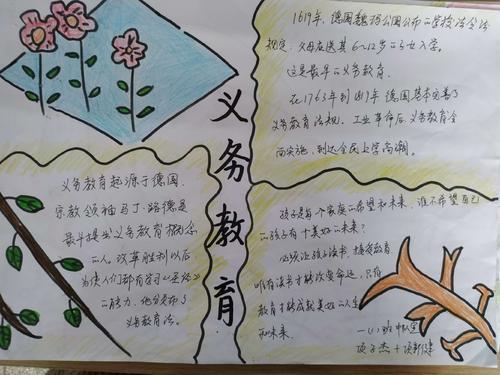 义务教育
1619年，德国魏玛公国公布的学校法令
规定，父母应送其6～12岁的子女入学。
这是最早的义务教育。
在1763年到1819年，德国基本完善了
义务教育法规。工业革命后，义务教育全
面实施，到达全民上学高潮。
义务教育起源于德国，
宗教领袖马丁·路德是
最早提出义务教育概念
的人。改革胜利以后
为使人们都有学习《圣经》
的能力，他公布了
义务教育法。
孩子是每个家庭的希望和未来，谁不希望自己
的孩子有个美好的未来？
让孩子读书，接受教育
唯有读书才能改变命运，只有
教育才能成就美好的人生
和未来。